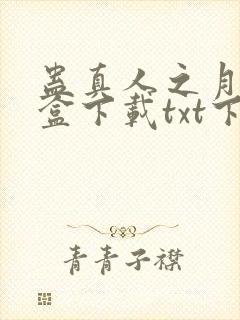 蛊真人之月
盒下载txt下
青青子襟